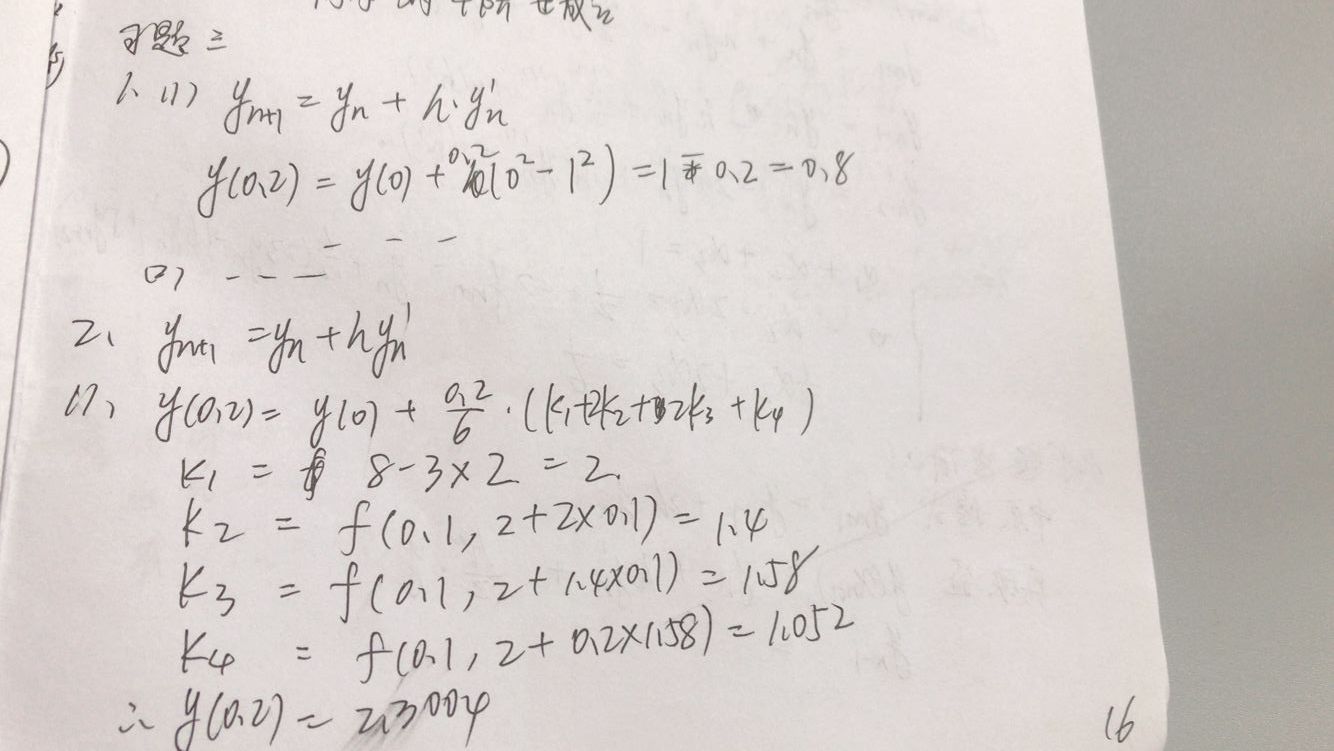 习题三
1、(1) yₙ₊₁ = yₙ + h·y'ₙ
y(0.2) = y(0) + 0.2(0² - 1²) = 1 - 0.2 = 0.8
- - -
(2) - - -
2、 yₙ₊₁ = yₙ + hy'ₙ
(1)、 y(0.2) = y(0) + 0.2/6 · (k₁+2k₂+2k₃+k₄)
K₁ = 8-3×2 = 2
K₂ = f(0.1, 2+2×0.1) = 1.4
K₃ = f(0.1, 2+1.4×0.1) = 1.58
K₄ = f(0.1, 2+0.2×1.58) = 1.052
∴ y(0.2) = 2.3004
16